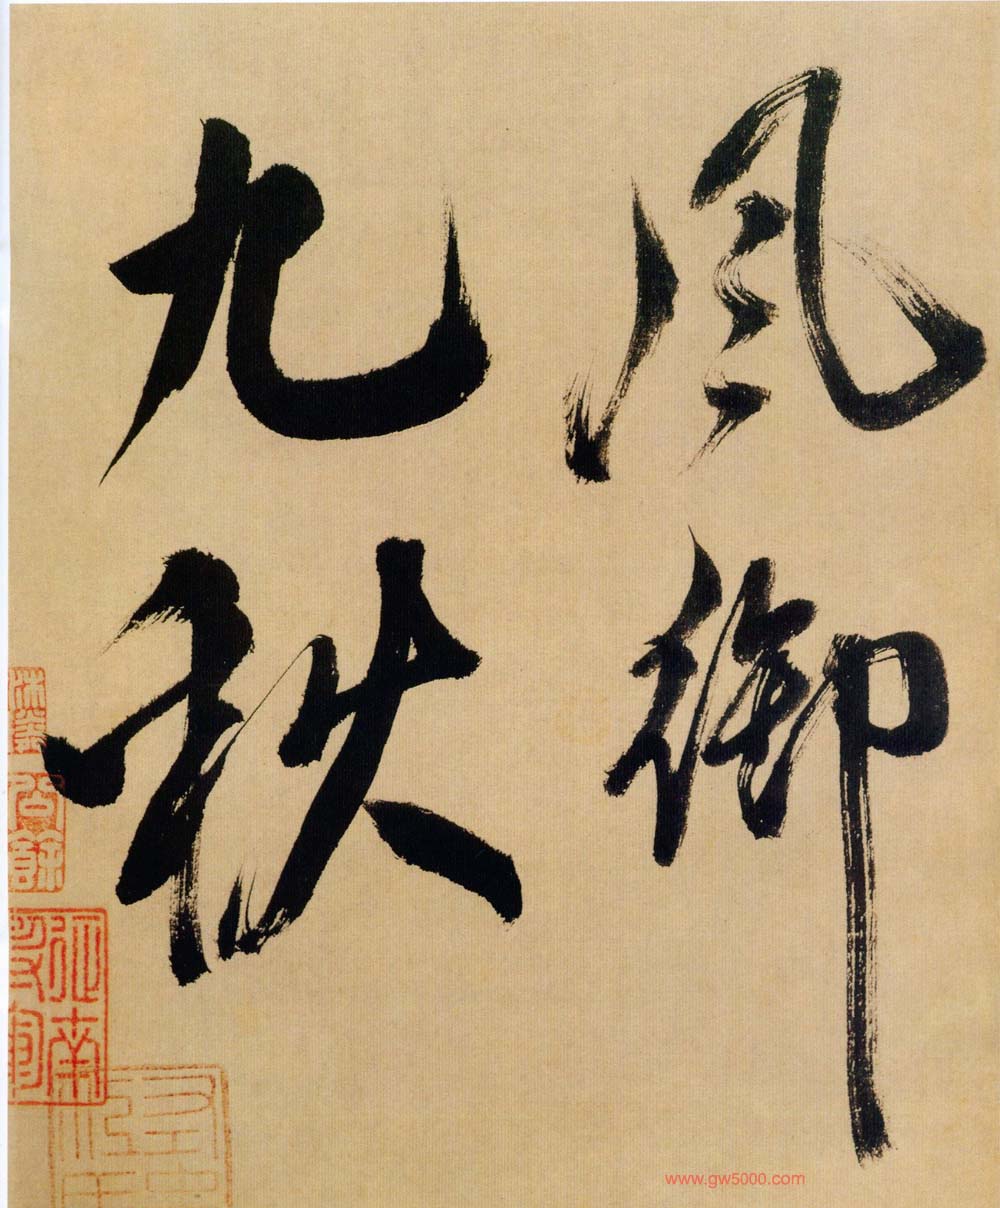 風御
九秋
www.gw5000.com